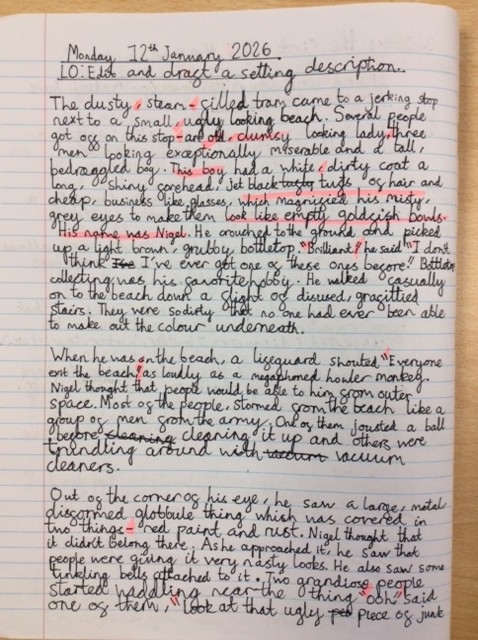 Monday 12th January 2026
LO: Edit and draft a setting description.
The dusty, steam-filled tram came to a jerking stop
next to a small, ugly looking beach. Several people
got off on this stop - are old, clumsy looking lady, three
men looking exceptionally miserable and a tall,
bedraggled boy. This boy had a white, dirty coat a
long, shiny forehead, jet black tufts of hair and
cheap, business like glasses, which magnified his misty,
grey eyes to make them look like empty goldfish bowls.
His name was Nigel. He crouched to the ground and picked
up a light brown, grubby bottletop. "Brilliant," he said "I don't
think I've ever got one of these ones before." Bottletop
collecting was his favorite hobby. He walked casually
on to the beach down a flight of disused, graffitied
stairs. They were so dirty that no one had ever been able
to make out the colour underneath.
When he was on the beach, a lifeguard shouted "Everyone
exit the beach" as loudly as a megaphoned howler monkey.
Nigel thought that people would be able to him from outer
space. Most of the people, stormed from the beach like a
group of men from the army. One of them jousted a ball
before cleaning cleaning it up and others were
trundling around with vacuum vacuum
cleaners.
Out of the corner of his eye, he saw a large, metal
disformed globbule thing which was covered in
two things - red paint and rust. Nigel thought that
it didn't belong there. As he approached it, he saw that
people were giving it very nasty looks. He also saw some
tinkling bells attached to it. Two grandiose people
started waddling near the thing "ooh" said
one of them, "look at that ugly piece of junk